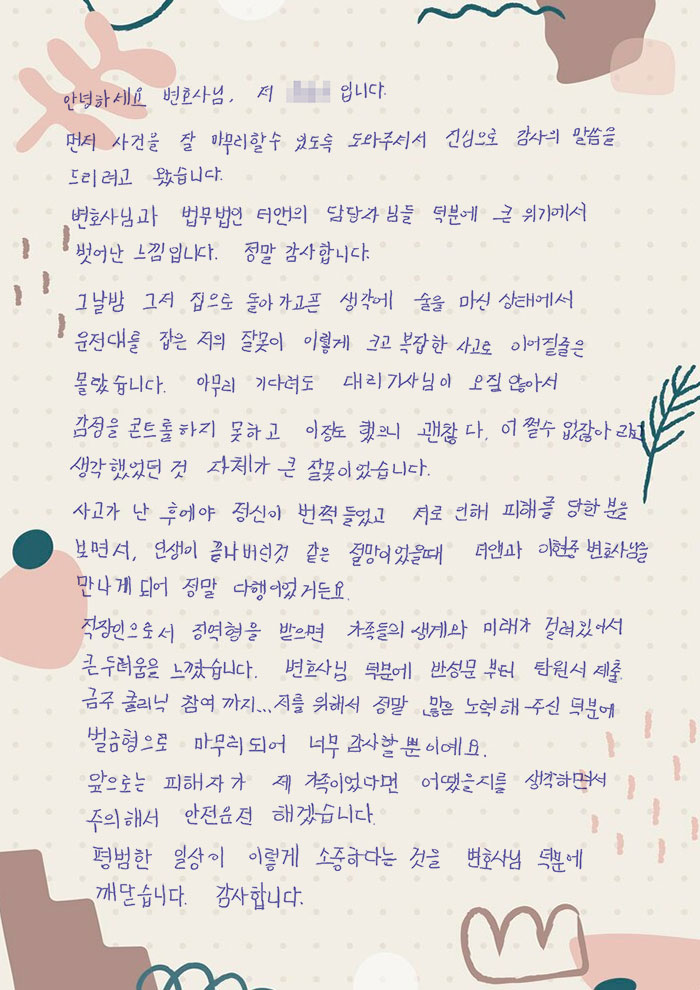 안녕하세요 변호사님, 저 입니다.
먼저 사건을 잘 마무리할수 있도록 도와주셔서 진심으로 감사의 말씀을
드리려고 왔습니다.
변호사님과 법무법인 터앤의 담당자 님들 덕분에 큰 위기에서
벗어난 느낌입니다. 정말 감사합니다.
그날밤 그저 집으로 돌아가고픈 생각에 술을 마신 상태에서
운전대를 잡은 저의 잘못이 이렇게 크고 복잡한 사고로 이어질줄은
몰랐습니다. 아무리 기다려도 대리기사님이 오질 않아서
감정을 콘트롤하지 못하고 이정도 했으니 괜찮다, 어쩔수 없잖아 라고
생각했었던 것 자체가 큰 잘못이었습니다.
사고가 난 후에야 정신이 번쩍들었고 저로 인해 피해를 당한 분을
보면서, 인생이 끝나버린것 같은 절망이었을때 터앤과 이현중 변호사님을
만나게 되어 정말 다행이었거든요.
직장인으로서 징역형을 받으면 가족들의 생계와 미래가 걸려있어서
큰 두려움을 느꼈습니다. 변호사님 덕분에 반성문부터 탄원서 제출.
금주 클리닉 참여 까지...저를 위해서 정말 많은 노력해 주신 덕분에
벌금형으로 마무리되어 너무 감사할 뿐이예요.
앞으로는 피해자가 제 가족이었다면 어땠을지를 생각하면서
주의해서 안전운전 하겠습니다.
평범한 일상이 이렇게 소중하다는 것을 변호사님 덕분에
깨닫습니다. 감사합니다.